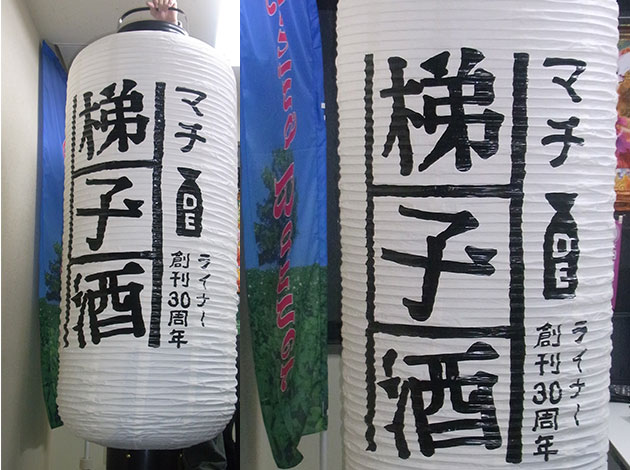 マチ DE
梯子酒
ライナー
創刊30周年
マチ DE
梯子酒
ライナー
創刊30周年
Banner